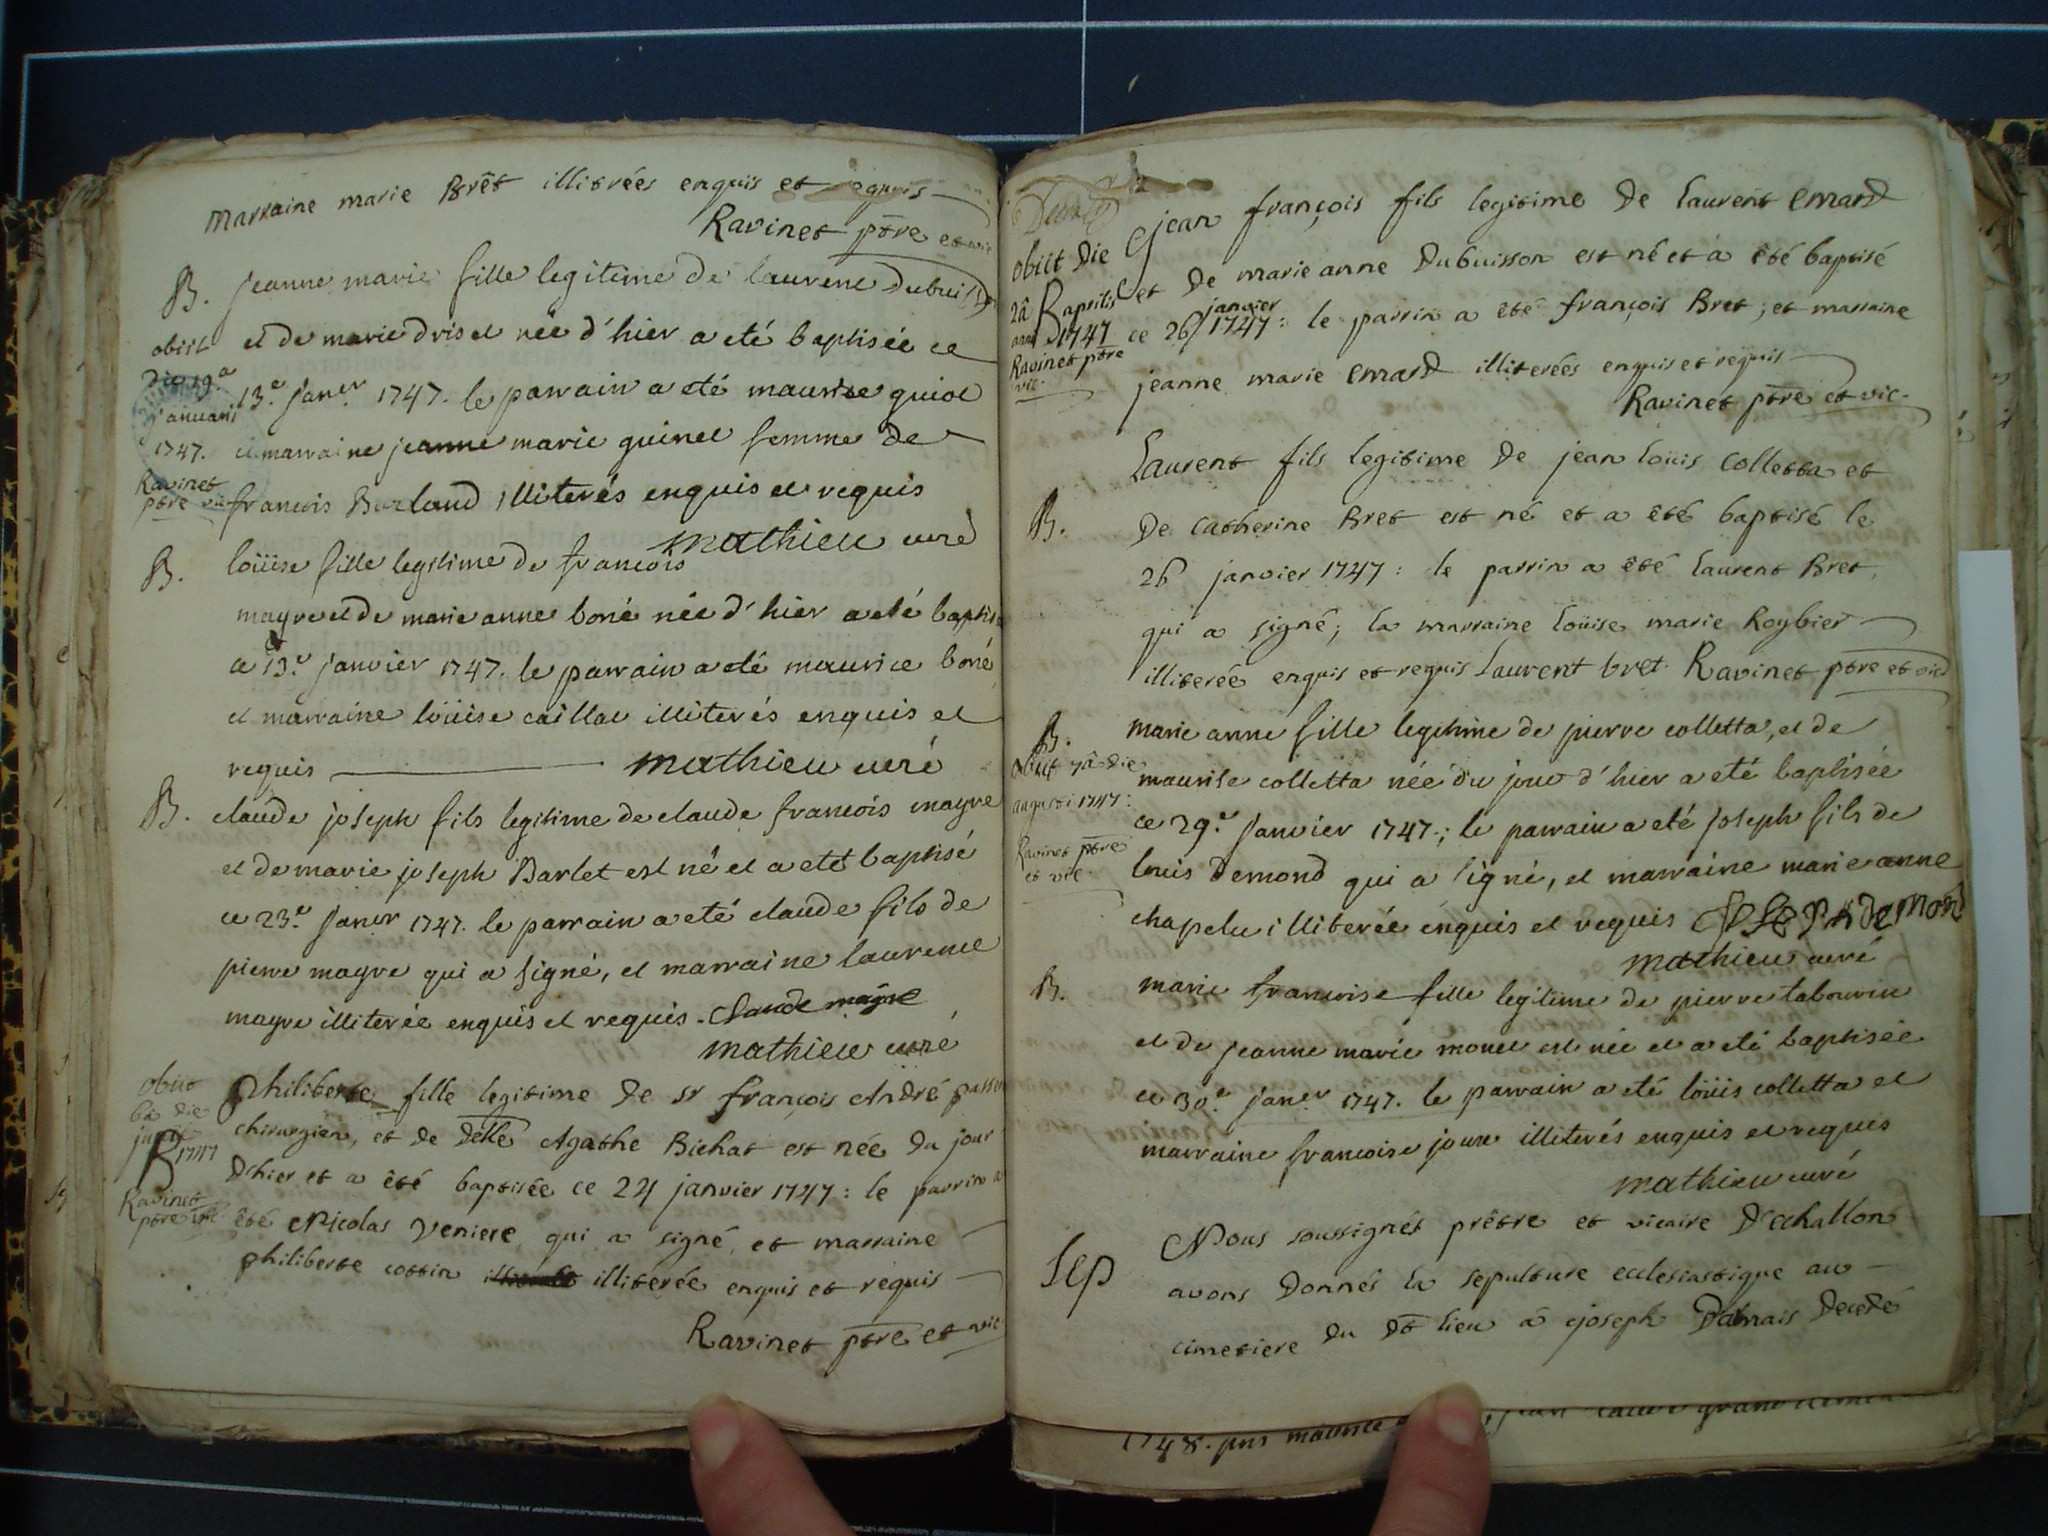 Marraine marie Brêt illitrées enquis et requis
Ravinet ptre et vic
B. jeanne marie fille legitime de laurent Dubuisson
et de marie drivet née d'hier a eté baptisée ce
13.e Janer 1747. le parrain a eté maurise guiot
et marraine jeanne marie guinet femme de
francois Burland illiterés enquis et requis
mathieu curé
obiit
die 19.a
Januarii
1747.
Ravinet
ptre vic
B. loüise fille legitime de francois
mayre et de marie anne boné née d'hier a eté baptisée
ce 13.e janvier 1747. le parrain a eté maurice boné
et marraine loüise caillat illiterés enquis et
requis mathieu curé
B. claude joseph fils legitime de claude francois mayre
et de marie joseph Barlet est né et a eté baptisé
ce 23.e Janer 1747. le parrain a eté claude fils de
pierre mayre qui a signé, et marraine laurence
mayre illiterée enquis et requis. Claude mayre
mathieu curé
philiberte fille legitime de sr françois André
chirurgien, et de delle Agathe Bichat est née du jour
d'hier et a êté baptisée ce 24 janvier 1747: le parrin a
êté Nicolas Veniere qui a signé, et marraine
philiberte cottin illiterée enquis et requis
Ravinet ptre et vic
obiit
6a die
B 1747
Ravinet
ptre vic
jean françois fils legitime de laurent Emard
et de marie anne Dubuisson est né et a êté baptisé
janvier
ce 26 / 1747: le parrin a eté françois Bret; et marraine
jeanne marie Emard illiterées enquis et requis
Ravinet ptre et vic.
obiit die
2â B aprilis
anni 1747
Ravinet ptre
vic.
Laurent fils legitime de jean loüis colletta et
B. De catherine Bret est né et a êté baptisé le
26 janvier 1747: le parrin a êté laurent Bret,
qui a signé; la marraine loüise marie Roybier
illiterée enquis et requis Laurent bret Ravinet ptre et vic
B. marie anne fille legitime de pierre colletta, et de
maurise colletta née du jour d'hier a eté baptisée
ce 29.e Janvier 1747.; le parrain a eté joseph fils de
louis Demond qui a signé, et marraine marie anne
chapelu illiterée enquis et requis JOSEPH deMond
mathieu curé
obiit 7â die
augusti 1747:
Ravinet ptre
et vic
B. marie francoise fille legitime de pierre tabourin
et de jeanne marie monet est née et a eté baptisée
ce 30.e janer 1747. le parrain a eté loüis colletta et
marraine francoise joux illiterés enquis et requis
mathieu curé
Sep Nous soussignés prêtre et vicaire D'echallon
avons Donnés la sepulture ecclesiastique au
cimetiere du dt lieu â joseph Damais Decedé
1748. pris maurice